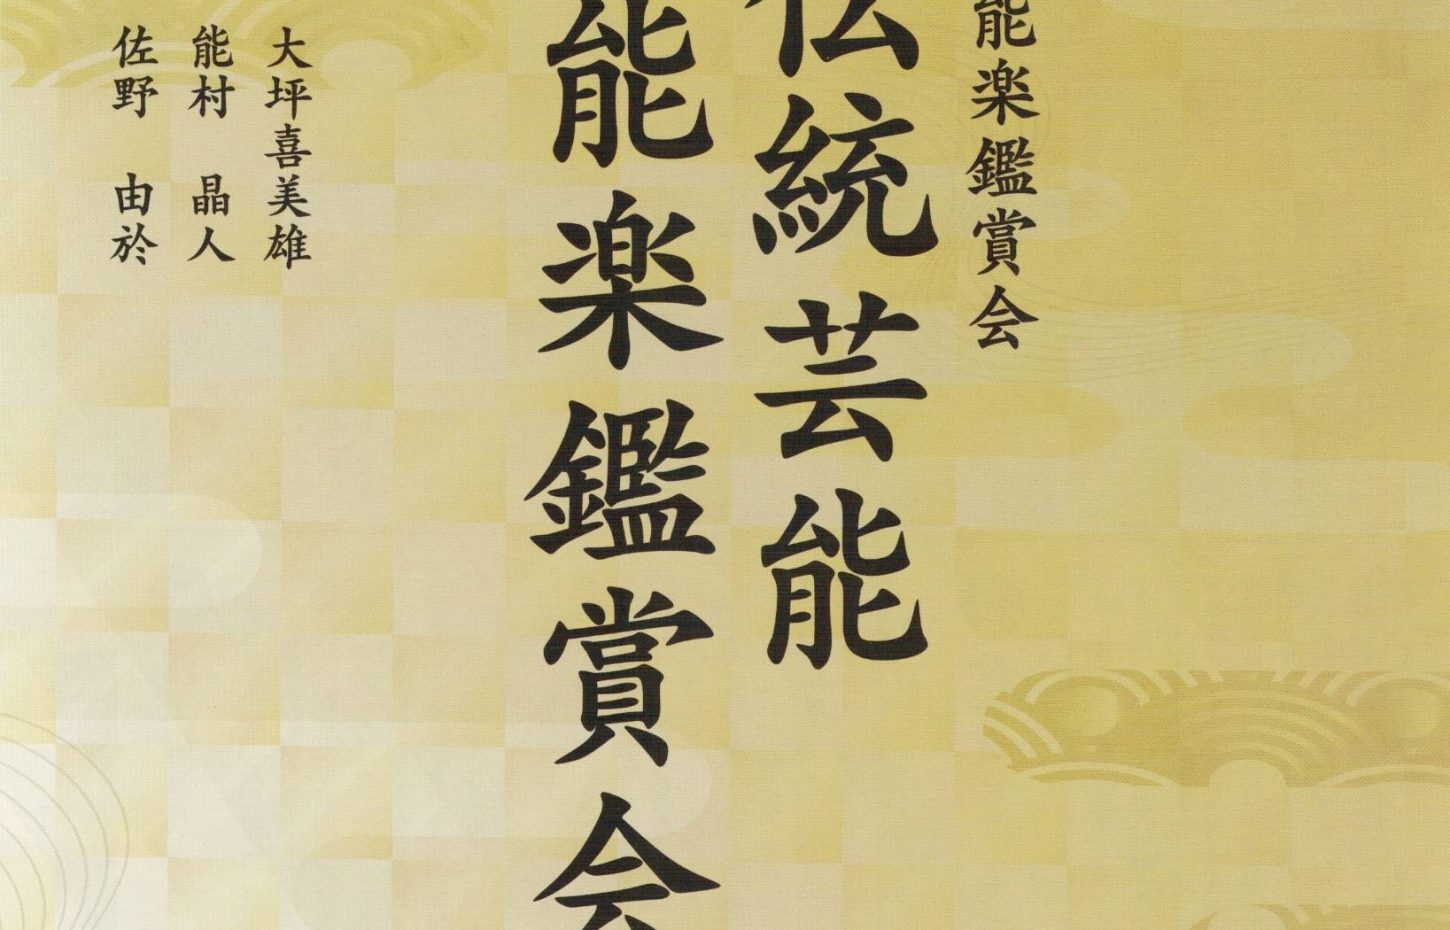 能楽鑑賞会
伝統芸能
能楽鑑賞会
大坪喜美雄
能村 晶人
佐野 由於